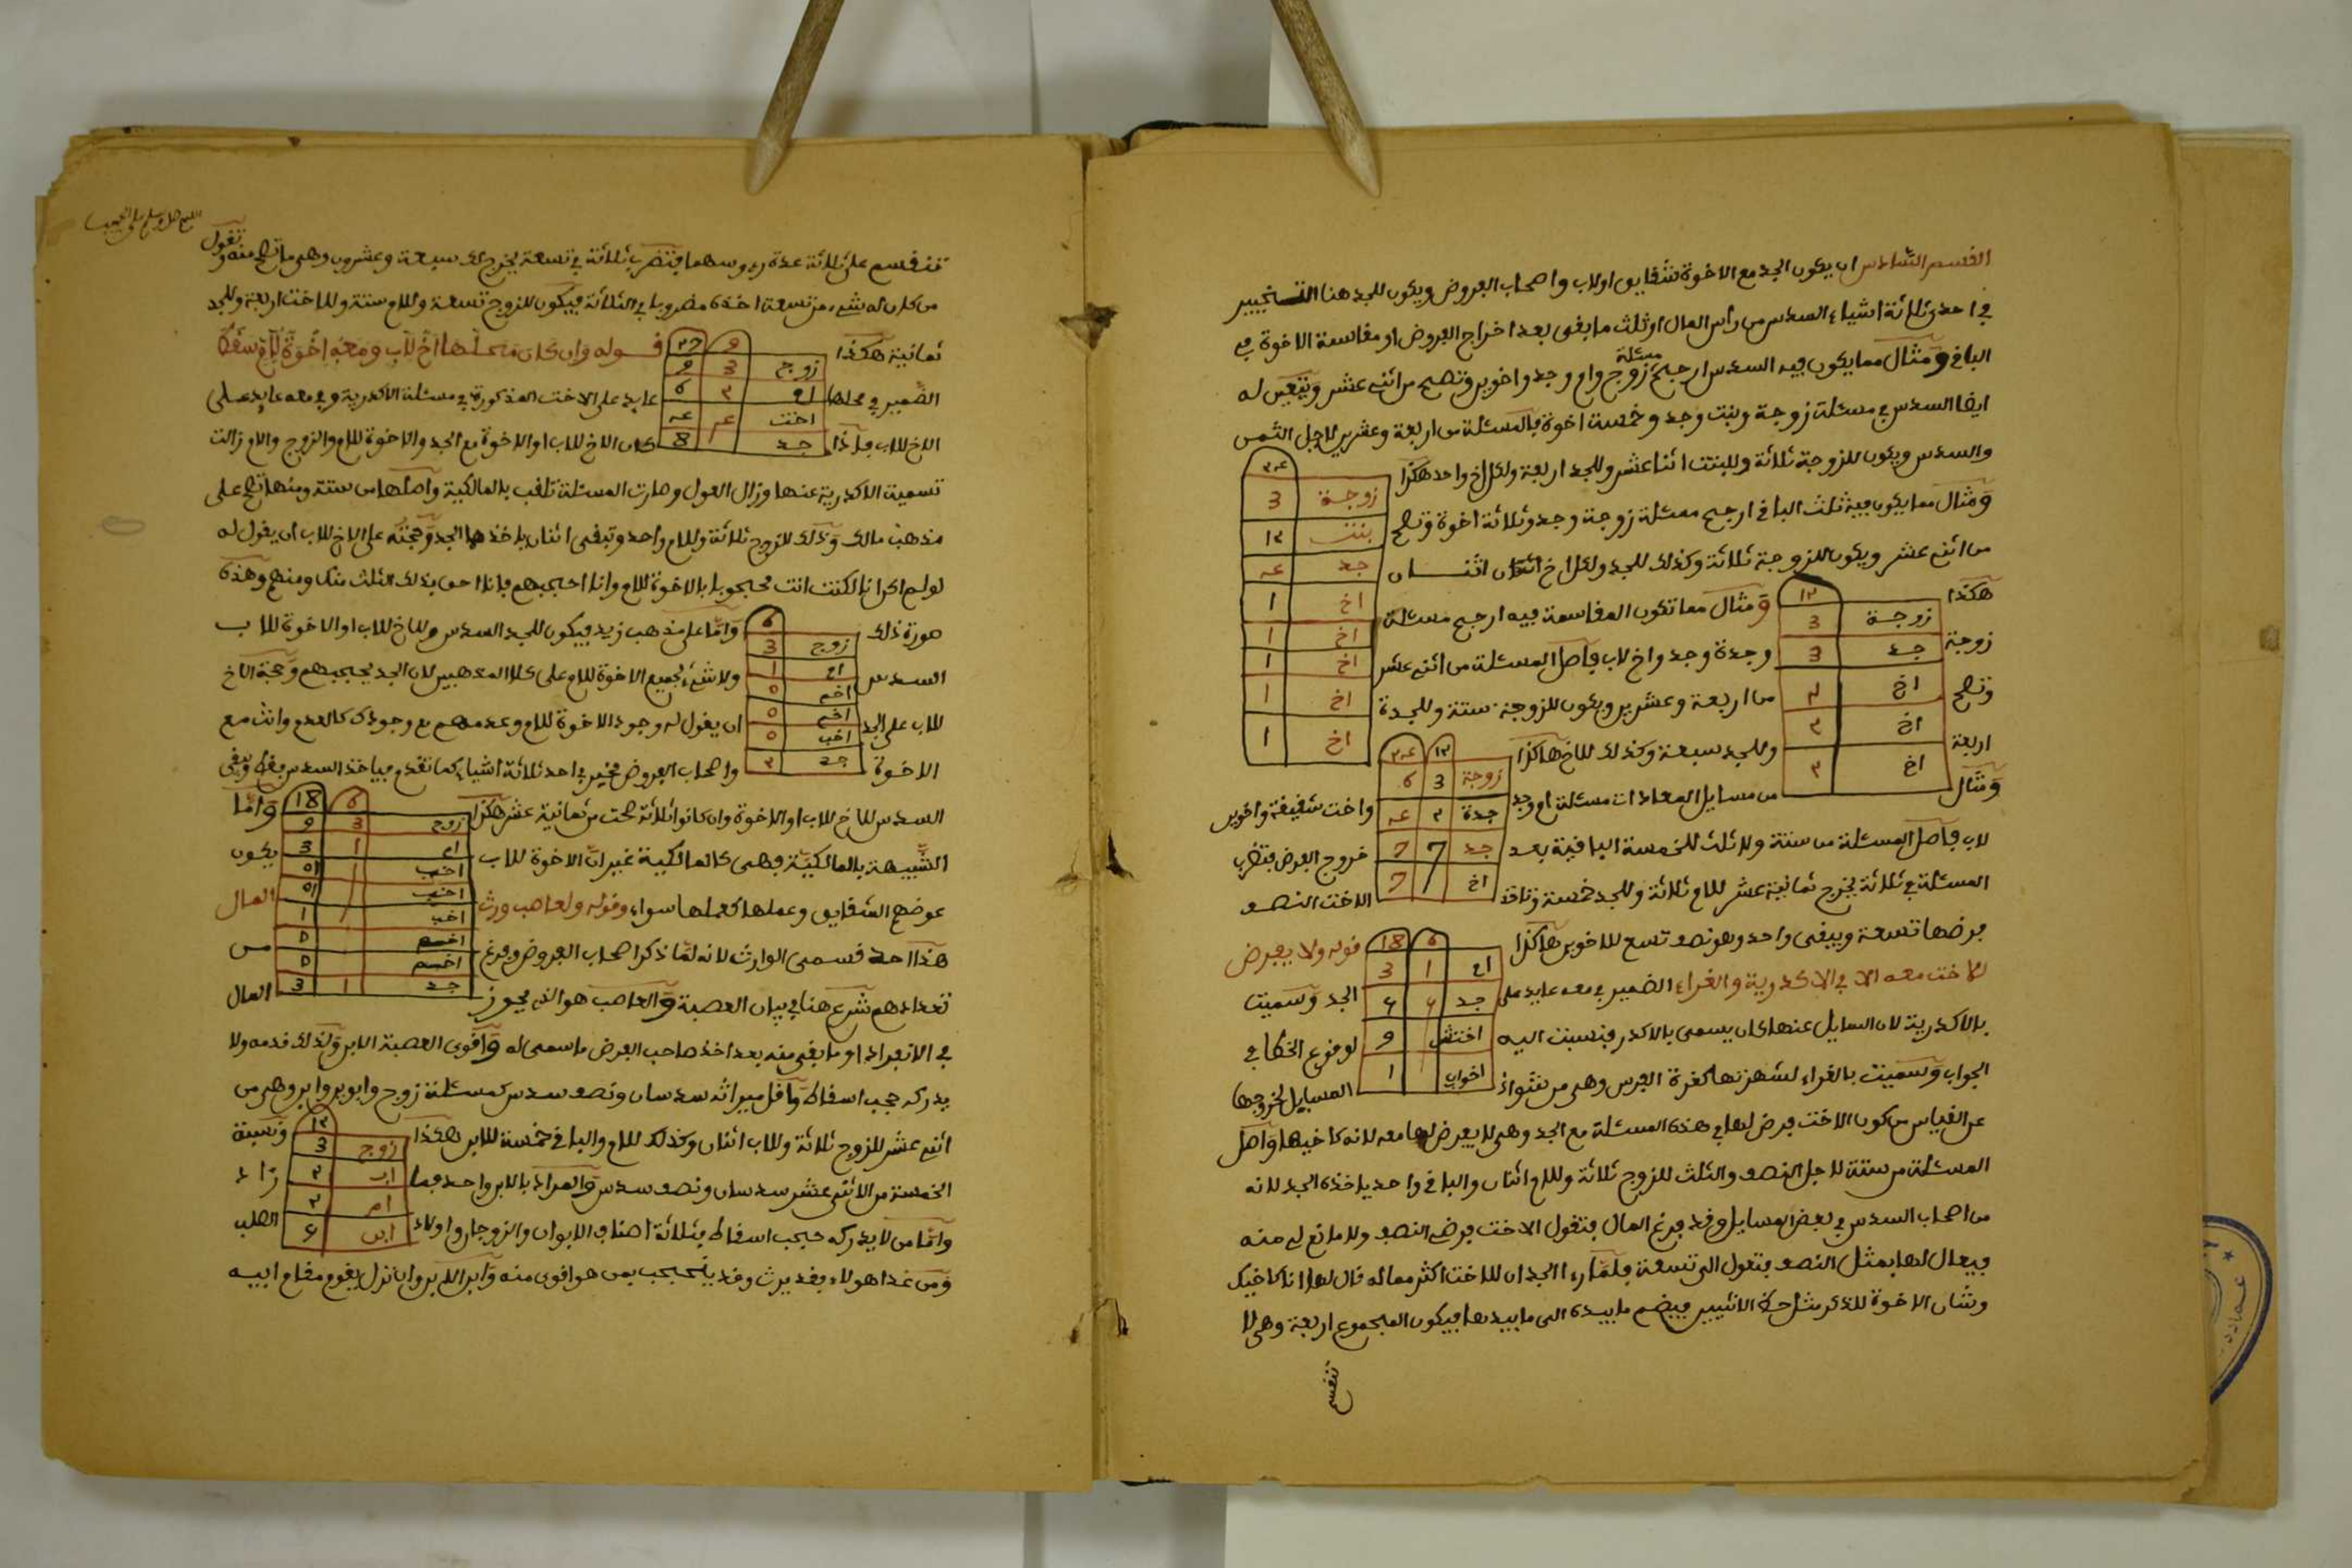 القسم السادس ان يكون الجد مع الاخوة شقايق او لاب واصحاب الفروض ويكون للجد هنا التخيير
في احدى ثلاثة اشياء السدس من راس المال او ثلث ما بقى بعد اخراج الفروض او مقاسمة الاخوة في
الباقي ومثال مما يكون فيه السدس ارجح مسئلة زوج وام وجد واخوين وتصح من اثني عشر ويتعين له
ايضا السدس في مسئلة زوجة وبنت وجد وخمسة اخوة فالمسئلة من اربعة وعشرين لاجل الثمن
والسدس ويكون للزوجة ثلاثة وللبنت اثنا عشر وللجد اربعة ولكل اخ واحد هكذا
٢٤
زوجة 3
بنت ١٢
جد ٤
اخ 1
اخ 1
اخ 1
اخ 1
اخ 1
ومثال مما يكون فيه ثلث الباقي ارجح مسئلة زوجة وجد وثلاثة اخوة وتصح
من اثني عشر ويكون للزوجة ثلاثة وكذلك للجد ولكل اخ اثنان
هكذا
١٢
زوجة 3
جد 3
اخ ٢
اخ ٢
اخ ٢
ومثال مما تكون المقاسمة فيه ارجح مسئلة
زوجة وجدة وجد واخ لاب فاصل المسئلة من اثني عشر
وتصح من اربعة وعشرين ويكون للزوجة ستة وللجدة
اربعة وللجد سبعة وكذلك للاخ هاكذا
١٢ ٢٤
زوجة 3 6
جدة ٢ ٤
جد 7 7
اخ 7
ومثال من مسايل المعادات مسئلة ام وجد واخت شقيقة واخوين
لاب فاصل المسئلة من ستة ولا ثلث للخمسة الباقية بعد خروج الفرض فتضرب
المسئلة في ثلاثة يخرج ثمانية عشر للام ثلاثة وللجد خمسة وتاخذ الاخت النصف
فرضها تسعة ويبقى واحد وهو نصف تسع للاخوين هاكذا
6 18
ام 1 3
جد
اختش 9
اخوان 1
قوله ولا يفرض
للاخت معه الا في الاكدرية والغراء الضمير في معه عايد على الجد وسميت
بالاكدرية لان السايل عنها كان يسمى بالاكدر فنسبت اليه لوقوع الخطا في
الجواب وسميت بالغراء لشهرتها كغرة الفرس وهي من شواذ المسايل لخروجها
عن القياس من كون الاخت فرض لها في هذه المسئلة مع الجد وهي لا يفرض لها معه لانه كاخيها واصل
المسئلة من ستة لاجل النصف والثلث للزوج ثلاثة وللام اثنان والباقي واحد ياخذه الجد لانه
من اصحاب السدس في بعض المسايل وقد فرغ المال فتقول الاخت فرضي النصف ولا مانع لي منه
فيعال لها بمثل النصف فتعول الى تسعة فلما راء الجد ان للاخت اكثر مما له قال لها انا كاخيك
وشان الاخوة للذكر مثل حظ الانثيين فيضم ما بيده الى ما بيدها فيكون المجموع اربعة وهي لا
تنقسم
تنقسم على ثلاثة عدة رءوسهما فتضرب ثلاثة في تسعة يخرج لك سبعة وعشرون وهي ما تصح منه وتقول
من كان له شيء من تسعة اخذه مضروبا في الثلاثة فيكون للزوج تسعة وللام ستة وللاخت اربعة وللجد
ثمانية هكذا
9 ٢7
زوج 3 9
ام ٢ 6
اخت ٤ ٤
جد 8
قوله وان كان محلها اخ لاب ومعه اخوة لام سقط
الضمير في محلها عايد على الاخت المذكورة في مسئلة الاكدرية وفي معه عايد على
الاخ للاب فاذا كان الاخ للاب او الاخوة مع الجد والاخوة للام والزوج والام زالت
تسمية الاكدرية عنها وزال العول وصارت المسئلة تلقب بالمالكية واصلها من ستة ومنها تصح على
مذهب مالك وذلك للزوج ثلاثة وللام واحد وتبقى اثنان ياخذها الجد وحجته على الاخ للاب ان يقول له
لو لم اكن انا لكنت انت محجوبا بالاخوة للام وانا احجبهم فانا احق بذلك الثلث منك ومنهم وهذه
صورة ذلك
6
زوج 3
ام 1
اخم 0
اخم 0
اخب 0
جد ٢
واما على مذهب زيد فيكون للجد السدس وللاخ للاب او الاخوة للاب
السدس ولا شيء لجميع الاخوة للام على كلا المذهبين لان الجد يحجبهم وحجة الاخ
للاب على الجد ان يقول له وجود الاخوة للام وعدمهم مع وجودك كالعدم وانت مع
الاخوة واصحاب الفروض مخير في احد ثلاثة اشياء كما تقدم فياخذ السدس فقط ويبقى
السدس للاخ للاب او الاخوة وان كانوا ثلاثة صحت من ثمانية عشر هكذا
6 18
زوج 3 9
ام 1 3
اخب 1
اخب 1
اخب 1
اخم 0
اخم 0
جد 1 3
واما
الشبيهة بالمالكية فهي كالمالكية غير ان الاخوة للاب يكون
عوضهم الشقايق وعملها كعملها سواء وقوله ولعاصب ورث المال
هذا احد قسمى الوارث لانه لما ذكر اصحاب الفروض وفرغ من
تعدادهم شرع هنا في بيان العصبة والعاصب هو الذي يحوز المال
في الانفراد او ما بقي منه بعد اخذ صاحب الفرض ما سمى له واقوى العصبة الابن ولذلك قدمه ولا
يدركه حجب اسقاط واقل ميراثه سدسان ونصف سدس كمسئلة زوج وابوين وابن وهي من
اثني عشر للزوج ثلاثة وللاب اثنان وكذلك للام والباقي خمسة للابن هكذا
١٢
زوج 3
اب ٢
ام ٢
ابن
ونسبة
الخمسة من الاثني عشر سدسان ونصف سدس والمراد بالابن واحد فما زاد
واما من لا يدركه حجب اسقاط فثلاثة اصناف الابوان والزوجان واولاد الصلب
ومن عدا هولاء فقد يرث وقد يحجب بمن هو اقوى منه وابن الابن وان نزل يقوم مقام ابيه